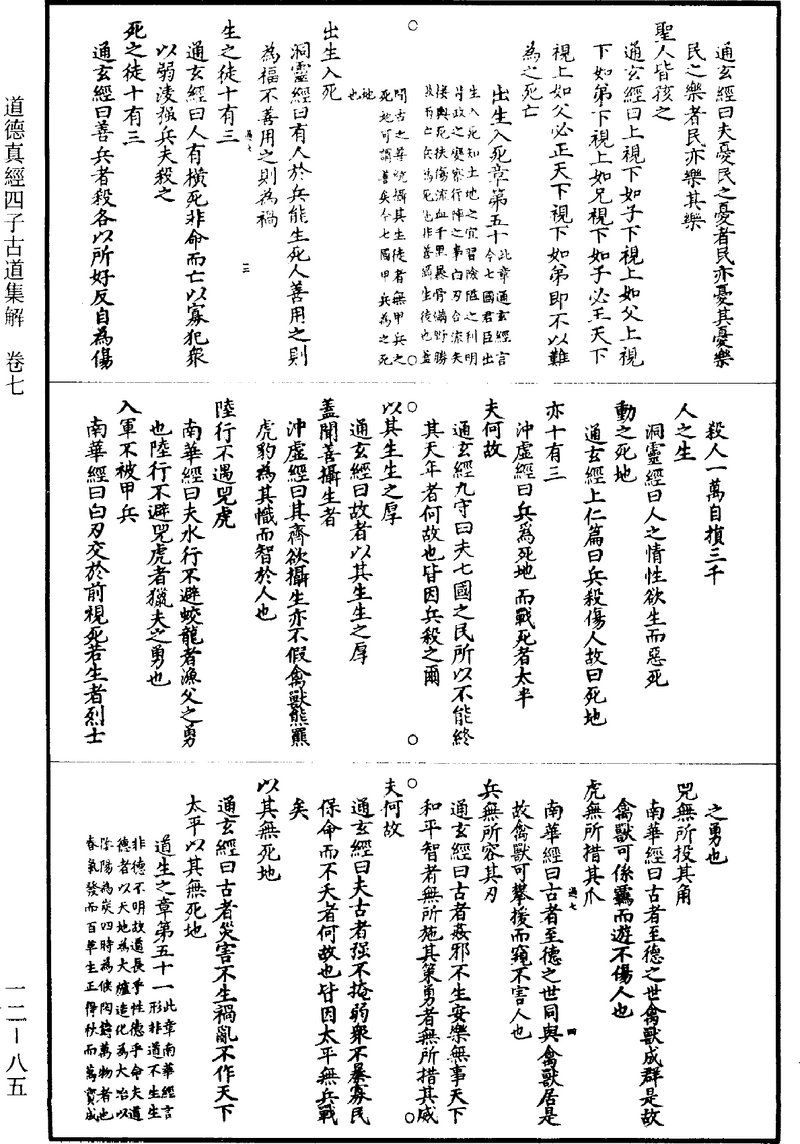 道德真經四子古道集解　卷七
一二—八五
通玄經曰夫憂民之憂者民亦憂其憂樂
民之樂者民亦樂其樂
聖人皆孩之
通玄經曰上視下如子下視上如父上視
下如弟下視上如兄視下如子必王天下
視上如父必正天下視下如弟即不以難
為之死亡
出生入死章第五十
此章通玄經言
今七國君臣出
生入死知土地之宜習險隘之利明
苛政之變察行陣之事白刃合流矢
接輿死扶傷流血千里暴骨滿野勝
聞古之善
攝其生徒者無甲兵之
死地可謂善矣今七國甲兵為之死
地也
出生入死
洞靈經曰有人於兵能生死人善用之則
為福不善用之則為禍
生之徒十有三
通玄經曰人有橫死非命而亡以寡犯衆
以弱凌強兵夫殺之
死之徒十有三
通玄經曰善兵者殺各以所好反自為傷
殺人一萬自損三千
人之生
洞靈經曰人之情性欲生而惡死
動之死地
通玄經上仁篇曰兵殺傷人故曰死地
亦十有三
沖虛經曰兵爲死地而戰死者太半
夫何故
通玄經九守曰夫七國之民所以不能終
其天年者何故也皆因兵殺之爾
以其生生之厚
通玄經曰故者以其生生之厚
蓋聞善攝生者
沖虛經曰其齊欲攝生亦不假禽獸熊羆
虎豹為其幟而智於人也
陸行不遇兕虎
南華經曰夫水行不避蛟龍者漁父之勇
也陸行不避兕虎者獵夫之勇也
入軍不被甲兵
南華經曰白刃交於前視死若生者烈士
之勇也
兕無所投其角
南華經曰古者至德之世禽獸成群是故
禽獸可係羈而遊不傷人也
虎無所措其爪
南華經曰古者至德之世同與禽獸居是
故禽獸可攀援而窺不害人也
兵無所容其刃
通玄經曰古者姦邪不生安樂無事天下
和平智者無所施其策勇者無所措其威
夫何故
通玄經曰夫古者强不掩弱衆不暴寡民
保命而不夭者何故也皆因太平無兵戰
矣
以其無死地
通玄經曰古者災害不生禍亂不作天下
太平以其無死地
道生之章第五十一
此章南華經言
形非道不生生
非德不明故道長乎性德乎命夫道
德者以天地為大爐造化為大冶以
陰陽為炭四時為候陶鑄萬物者也
春氣發而百草生正得秋而萬寶成